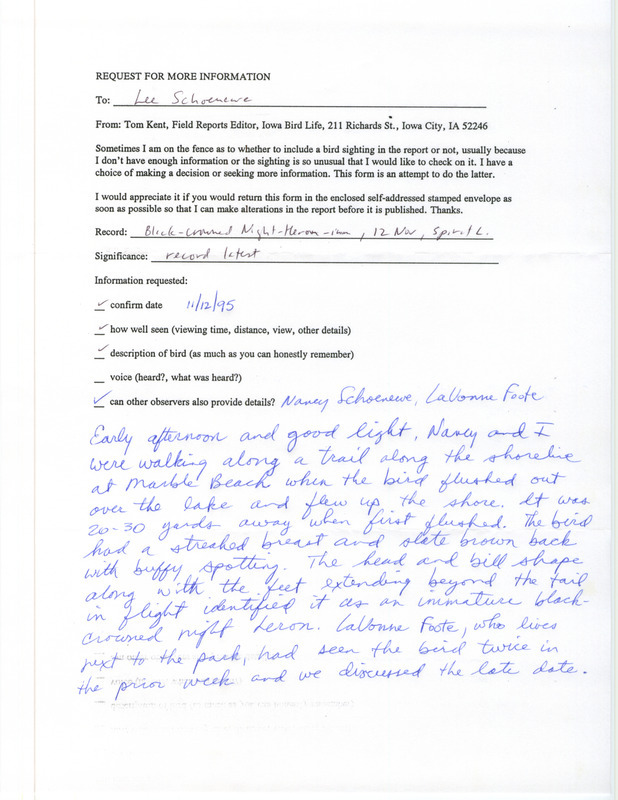 REQUEST FOR MORE INFORMATION
To: Lee Schoenewe
From: Tom Kent, Field Reports Editor, Iowa Bird Life, 211 Richards St., Iowa City, IA 52246
Sometimes I am on the fence as to whether to include a bird sighting in the report or not, usually because
I don't have enough information or the sighting is so unusual that I would like to check on it. I have a
choice of making a decision or seeking more information. This form is an attempt to do the latter.
I would appreciate it if you would return this form in the enclosed self-addressed stamped envelope as
soon as possible so that I can make alterations in the report before it is published. Thanks.
Record: Black-crowned Night-Heron-imm, 12 Nov, Spirit L.
Significance: record latest
Information requested:
✓ confirm date 11/12/95
✓ how well seen (viewing time, distance, view, other details)
✓ description of bird (as much as you can honestly remember)
__ voice (heard?, what was heard?)
✓ can other observers also provide details? Nancy Schoenewe, LaVonne Foote
Early afternoon and good light, Nancy and I
were walking along a trail along the shoreline
at Marble Beach when the bird flushed out
over the lake and flew up the shore. It was
20-30 yards away when first flushed. The bird
had a streaked breast and slate brown back
with buffy spotting. The head and bill shape
along with the feet extending beyond the tail
in flight identified it as an immature black-
crowned night heron. LaVonne Foote, who lives
next to the park, had seen the bird twice in
the prior week and we discussed the late date.